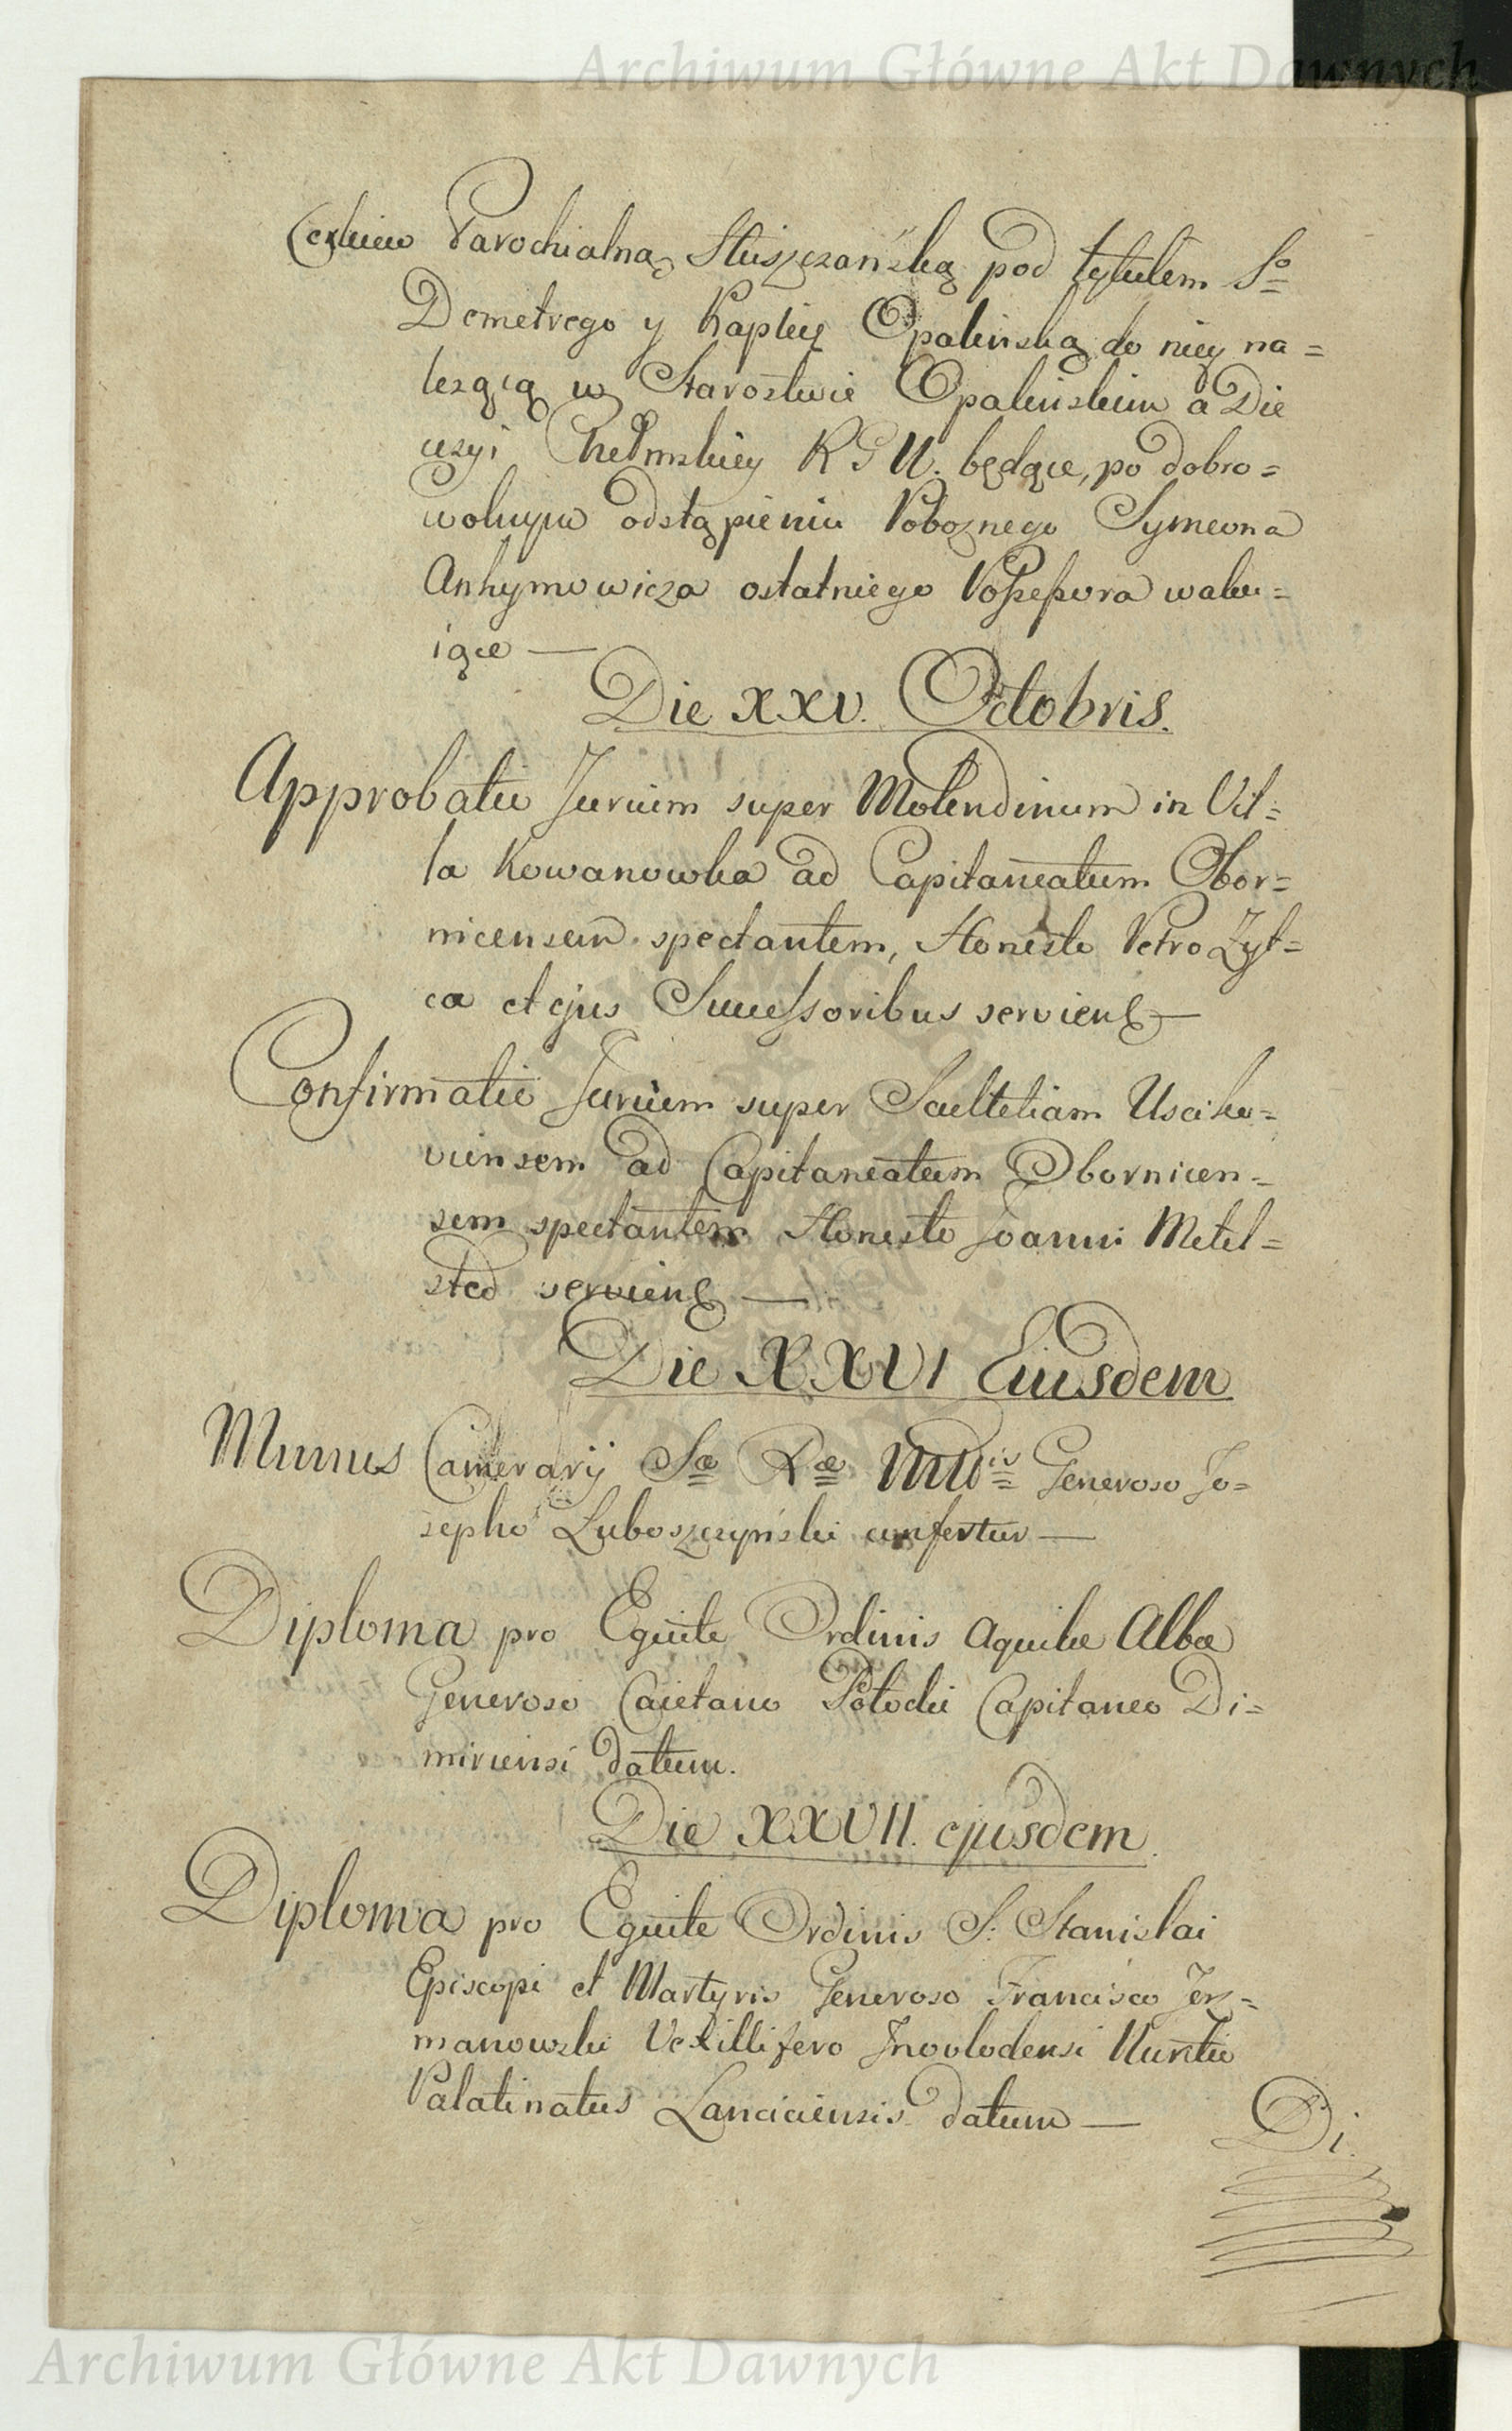 Archiwum Główne Akt Dawnych
Cerkiew Parochialną Hniszczańską pod tytułem So
Demetrego y Kaplicę Opalińską do niey na=
lezącą w Starostwie Opalińskim a Die
cezyi Chełmskiey R G U. będące, po dobro=
wolnym odstąpieniu Poboznego Symeona
Anhymowicza ostatniego Possessora waku=
iące —
Die XXV. Octobris.
Approbatio Jurium super Molendinum in Vil=
la Kowanowka ad Capitaneatum Obor=
nicensem spectantem, Honesto Petro Zyt=
ca et ejus Successoribus serviens —
Confirmatio Jurium super Scultetiam Usciko=
viensem ad Capitaneatum Obornicen=
sem spectantem Honesto Joanni Metel=
sted serviens —
Die XXVI Eiusdem
Munus Camerarij Sæ Ræ Mttis Generoso Jo=
sepho Luboszczyński confertur —
Diploma pro Equite Ordinis Aquilæ Albæ
Generoso Caietano Potocki Capitaneo Di=
mirensi datum.
Die XXVII. ejusdem
Diploma pro Equite Ordinis S: Stanislai
Episcopi et Martyris Generoso Francisco Jerz=
manowski Vexillifero Inovlodensi Nuntio
Palatinatus Lanciciensis datum —
Di.
Archiwum Główne Akt Dawnych